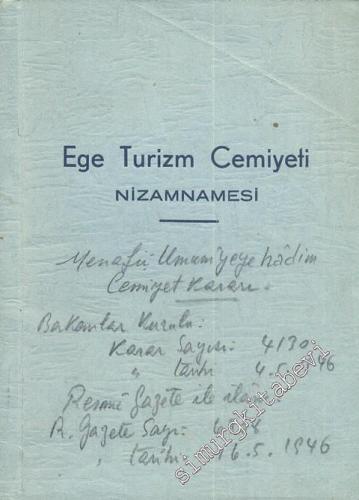 Ege Turizm Cemiyeti
NİZAMNAMESİ
Menafii Umumiyeye hâdim
Cemiyet Kararı.
Bakanlar Kurulu:
Karar Sayısı: 4130
" tarihi 4.5. 46
Resmî Gazete ile ilânı:
R. Gazete Sayı:
" tarihi: 16.5.1946
simurgkitabevi.com